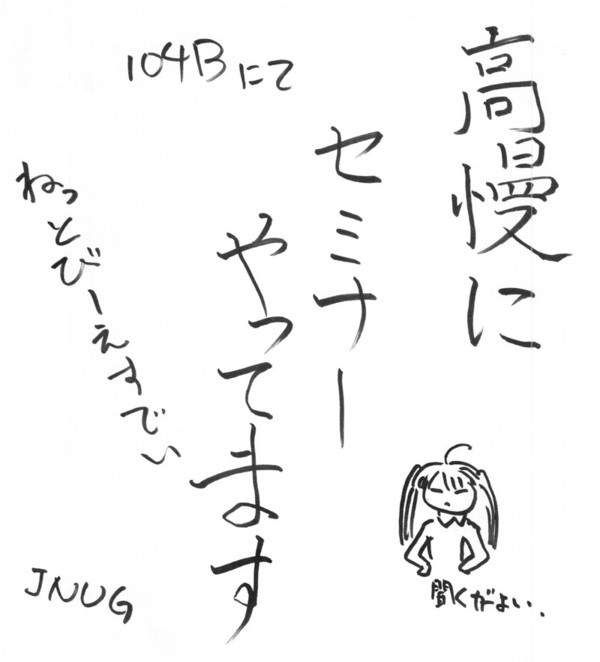 高慢に
セミナー
やってます
104Bにて
ねっとびーえすでぃ
JNUG
聞くがよい.